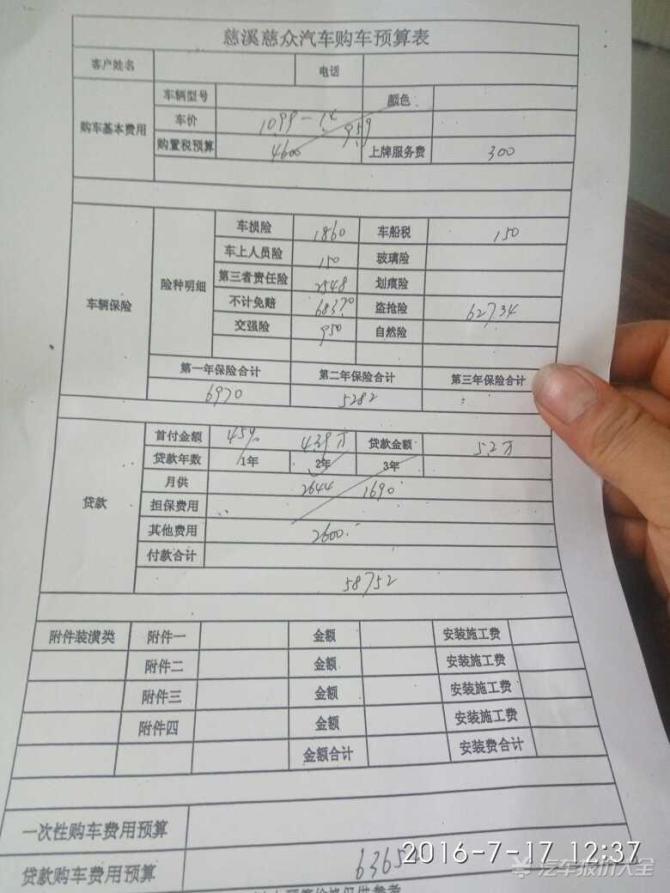 慈溪慈众汽车购车预算表
客户姓名 电话
购车基本费用 车辆型号 颜色
车价 1099 959
购置税预算 4600 上牌服务费 300
车辆保险 险种明细 车损险 1860 车船税 150
车上人员险 150 玻璃险
第三者责任险 2548 划痕险
不计免赔 盗抢险 627.34
交强险 950 自然险
第一年保险合计 第二年保险合计 第三年保险合计
6970 5282
贷款 首付金额 45% 4.39万 贷款金额 5.2万
贷款年数 1年 2年 3年
月供 2644 1690
担保费用
其他费用 2600
付款合计
58752
附件装潢类 附件一 金额 安装施工费
附件二 金额 安装施工费
附件三 金额 安装施工费
附件四 金额 安装施工费
金额合计 安装费合计
一次性购车费用预算
贷款购车费用预算 6365
2016-7-17 12:37
汽车报价大全